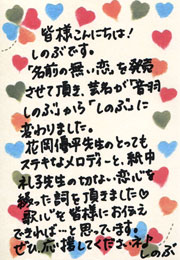 皆様こんにちは!
しのぶです。
"名前の無い恋"を発売
させて頂き、芸名が"音羽
しのぶ"から"しのぶ"に
変わりました。
花岡優平先生のとっても
ステキなメロディーと、紙中
礼子先生の切ない恋心を
綴った詞を頂きました♡
歌心を皆様にお伝え
できれば…と思っています。
ぜひ、応援してくださいネ♪
しのぶ